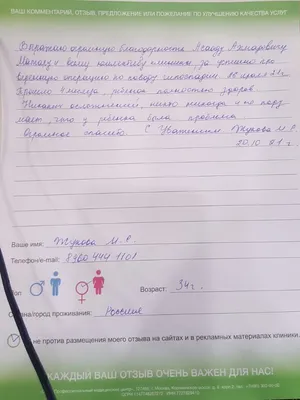 ВАШ КОММЕНТАРИЙ, ОТЗЫВ, ПРЕДЛОЖЕНИЕ ИЛИ ПОЖЕЛАНИЕ ПО УЛУЧШЕНИЮ КАЧЕСТВА УСЛУГ
Выражаю огромную благодарность Асааду
и всему коллективу клиники за успешно про
операцию по поводу гипоспадии июля 21г.
Прошло 4 месяца, ребёнок полностью здоров.
Никаких осложнений, никто никогда и не поду
мает, что у ребёнка была проблема.
Огромное спасибо. С Уважением Жукова М.Р.
20.10.21.
Ваше имя: Жукова М.Р.
Телефон/e-mail: 8360 444 1101
Пол
Возраст: 34г.
Страна/город проживания: Россия
не против размещения моего отзыва на сайтах и в рекламных материалах клиники,
КАЖДЫЙ ВАШ ОТЗЫВ ОЧЕНЬ ВАЖЕН ДЛЯ НАС!